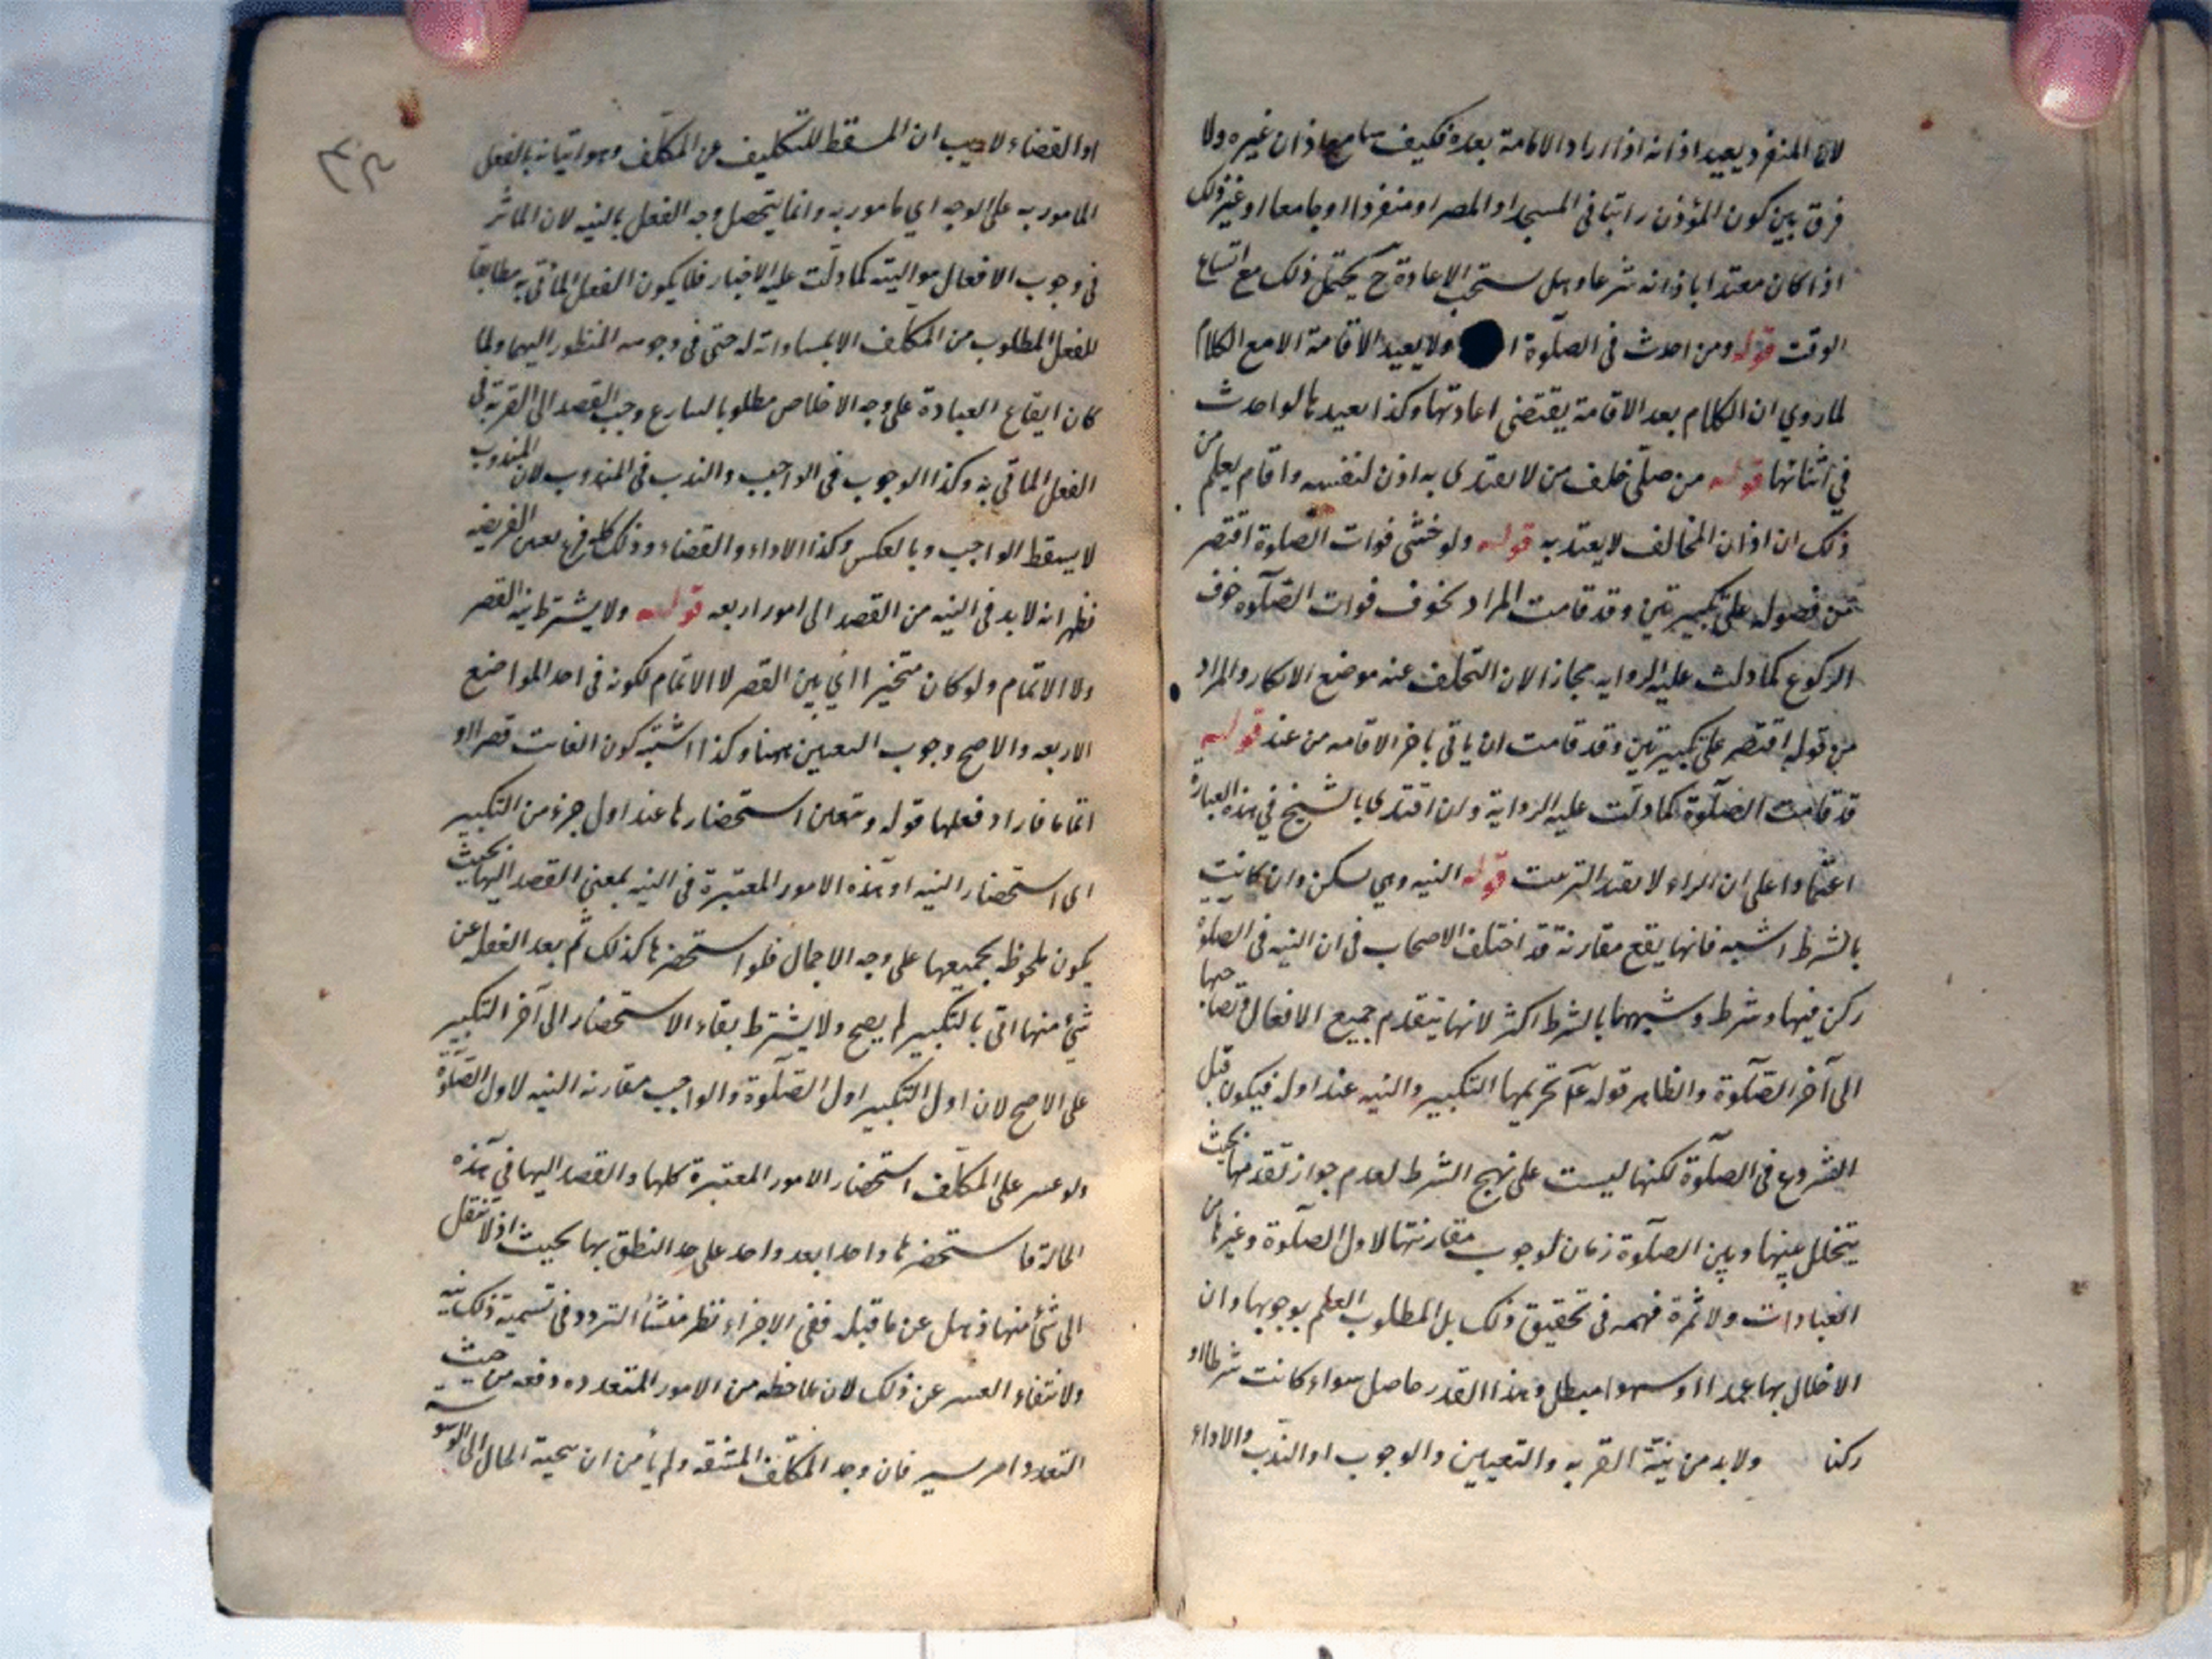 لان المنفرد يعيد اذانه اذا اراد الامامة بعده فكيف سامع اذان غيره ولا
فرق بين كون المؤذن راتبا فى المسجد او المصر او منفردا او جامعا او غير ذلك
اذا كان معتدا باذانه شرعا وهل يستحب الاعادة ح يحتمل ذلك مع اتساع
الوقت قوله ومن احدث فى الصلوة ا ولا يعيد الاقامة الا مع الكلام
لما روي ان الكلام بعد الاقامة يقتضى اعادتها وكذا يعيدها لو احدث
في اثنائها قوله من صلى خلف من لا يقتدى به اذن لنفسه واقام يعلم من
ذلك ان اذان المخالف لا يعتد به قوله ولو خشى فوات الصلوة اقتصر
من فصوله على تكبيرتين وقد قامت المراد بخوف فوات الصلوة خوف
الركوع كما دلت عليه الرواية مجازا لان التخلف عنه موضع الانكار والمراد
من قوله اقتصر على تكبيرتين وقد قامت ان ياتى باخر الاقامه من عند قوله
قد قامت الصلوة كما دلت عليه الرواية وان اقتدى بالشيخ في هذه العبارة
اعتمادا على ان الواو لا يفيد الترتيب قوله النيه وهي ركن وان كانت
بالشرط اشبه فانها يقع مقارنة قد اختلف الاصحاب فى ان النيه فى الصلوة
ركن فيها وشرط وشبهها بالشرط اكثر لانها يتقدم جميع الافعال وتصاحبها
الى آخر الصلوة والظاهر قوله عم تحريمها التكبير والنيه عند اوله فيكون قبل
الشروع فى الصلوة لكنها ليست على نهج الشرط لعدم جواز تقدمها بحيث
يتخلل بينها وبين الصلوة زمان لوجوب مقارنتها لاول الصلوة وغيرها من
العبادات ولا ثمرة مهمه فى تحقيق ذلك بل المطلوب العلم بوجوبها وان
الاخلال بها عمدا او سهوا مبطل وهذا القدر حاصل سواء كانت شرطا او
ركنا ولابد من نيّة القربه والتعيين والوجوب او الندب والاداء
او القضاء لا ريب ان المسقط للتكليف عن المكلف وهو اتيانه بالفعل
المامور به على الوجه اي مامور به وانما يتحصل وجه الفعل بالنيه لان الماثر
فى وجوب الافعال هو النيته كما دلت عليه الاخبار فلا يكون الفعل المأتى به مطابقا
للفعل المطلوب من المكلف الا بمساواته له حتى فى وجوهه المنظور اليها ولما
كان ايقاع العبادة على وجه الاخلاص مطلوبا للشارع وجب القصد الى القربة فى
الفعل الماتى به وكذا الوجوب فى الواجب والندب فى المندوب لان المندوب
لا يسقط الواجب وبالعكس وكذا الاداء والقضاء وذلك كله فرع تعين الفريضه
فظهر انه لابد فى النيه من القصد الى امور اربعه قوله ولا يشترط نية القصر
ولا الاتمام ولو كان متخيرا اي بين القصر لا الاتمام لكونه فى احد المواضع
الاربعه والاصح وجوب التعيين هنا وكذا اشتبه كون الفائت قصرا او
اتماما فاراد فعلها قوله ويتعين استحضارها عند اول جزء من التكبير
اى استحضار النيه او هذه الامور المعتبرة فى النيه بمعنى القصد اليها بحيث
يكون ملحوظه بجميعها على وجه الاجمال فلو استحضرها كذلك ثم بعد الغفله عن
شئ منها اتى بالتكبير لم يصح ولا يشترط بقاء الاستحضار الى آخر التكبير
على الاصح لان اول التكبير اول الصلوة والواجب مقارنه النيه لاول الصلوة
ولو عسر على المكلف استحضار الامور المعتبرة كلها والقصد اليها فى هذه
الحالة فاستحضرها واحدا بعد واحد على حد النطق بها بحيث اذا انتقل
الى شئ منها ذهل عن ما قبله ففى الاجزاء نظر منشأ التردد فى تسمية ذلك نيه
ولانتفاء العسر عن ذلك لان ملاحظه من الامور المتعدده دفعه من حيث
التعدد امر يسير فان وجد المكلف المشقه ولم يأمن ان يجية الحال الى الوسوسة